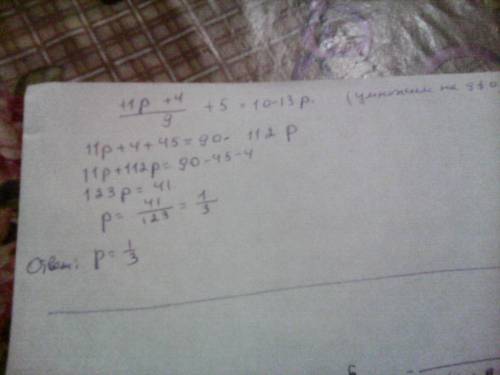 11p + 4 / 9 + 5 = 10-13p. (умножим на 9≠0
11p+4+45=90- 112 p
11p+112p= 90-45-4
123p= 41
p= 41/123 = 1/3
Ответ: p= 1/3